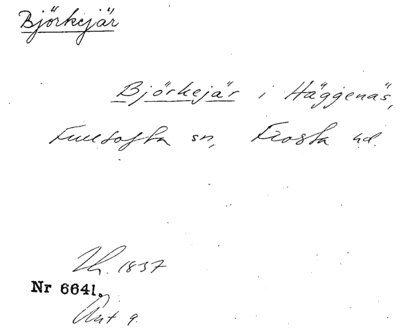 Björkejär
Björkejär i Häggenäs,
Fulltofta sn, Frosta hd.
Th. 1837
Nr 6641.
Ant 9.